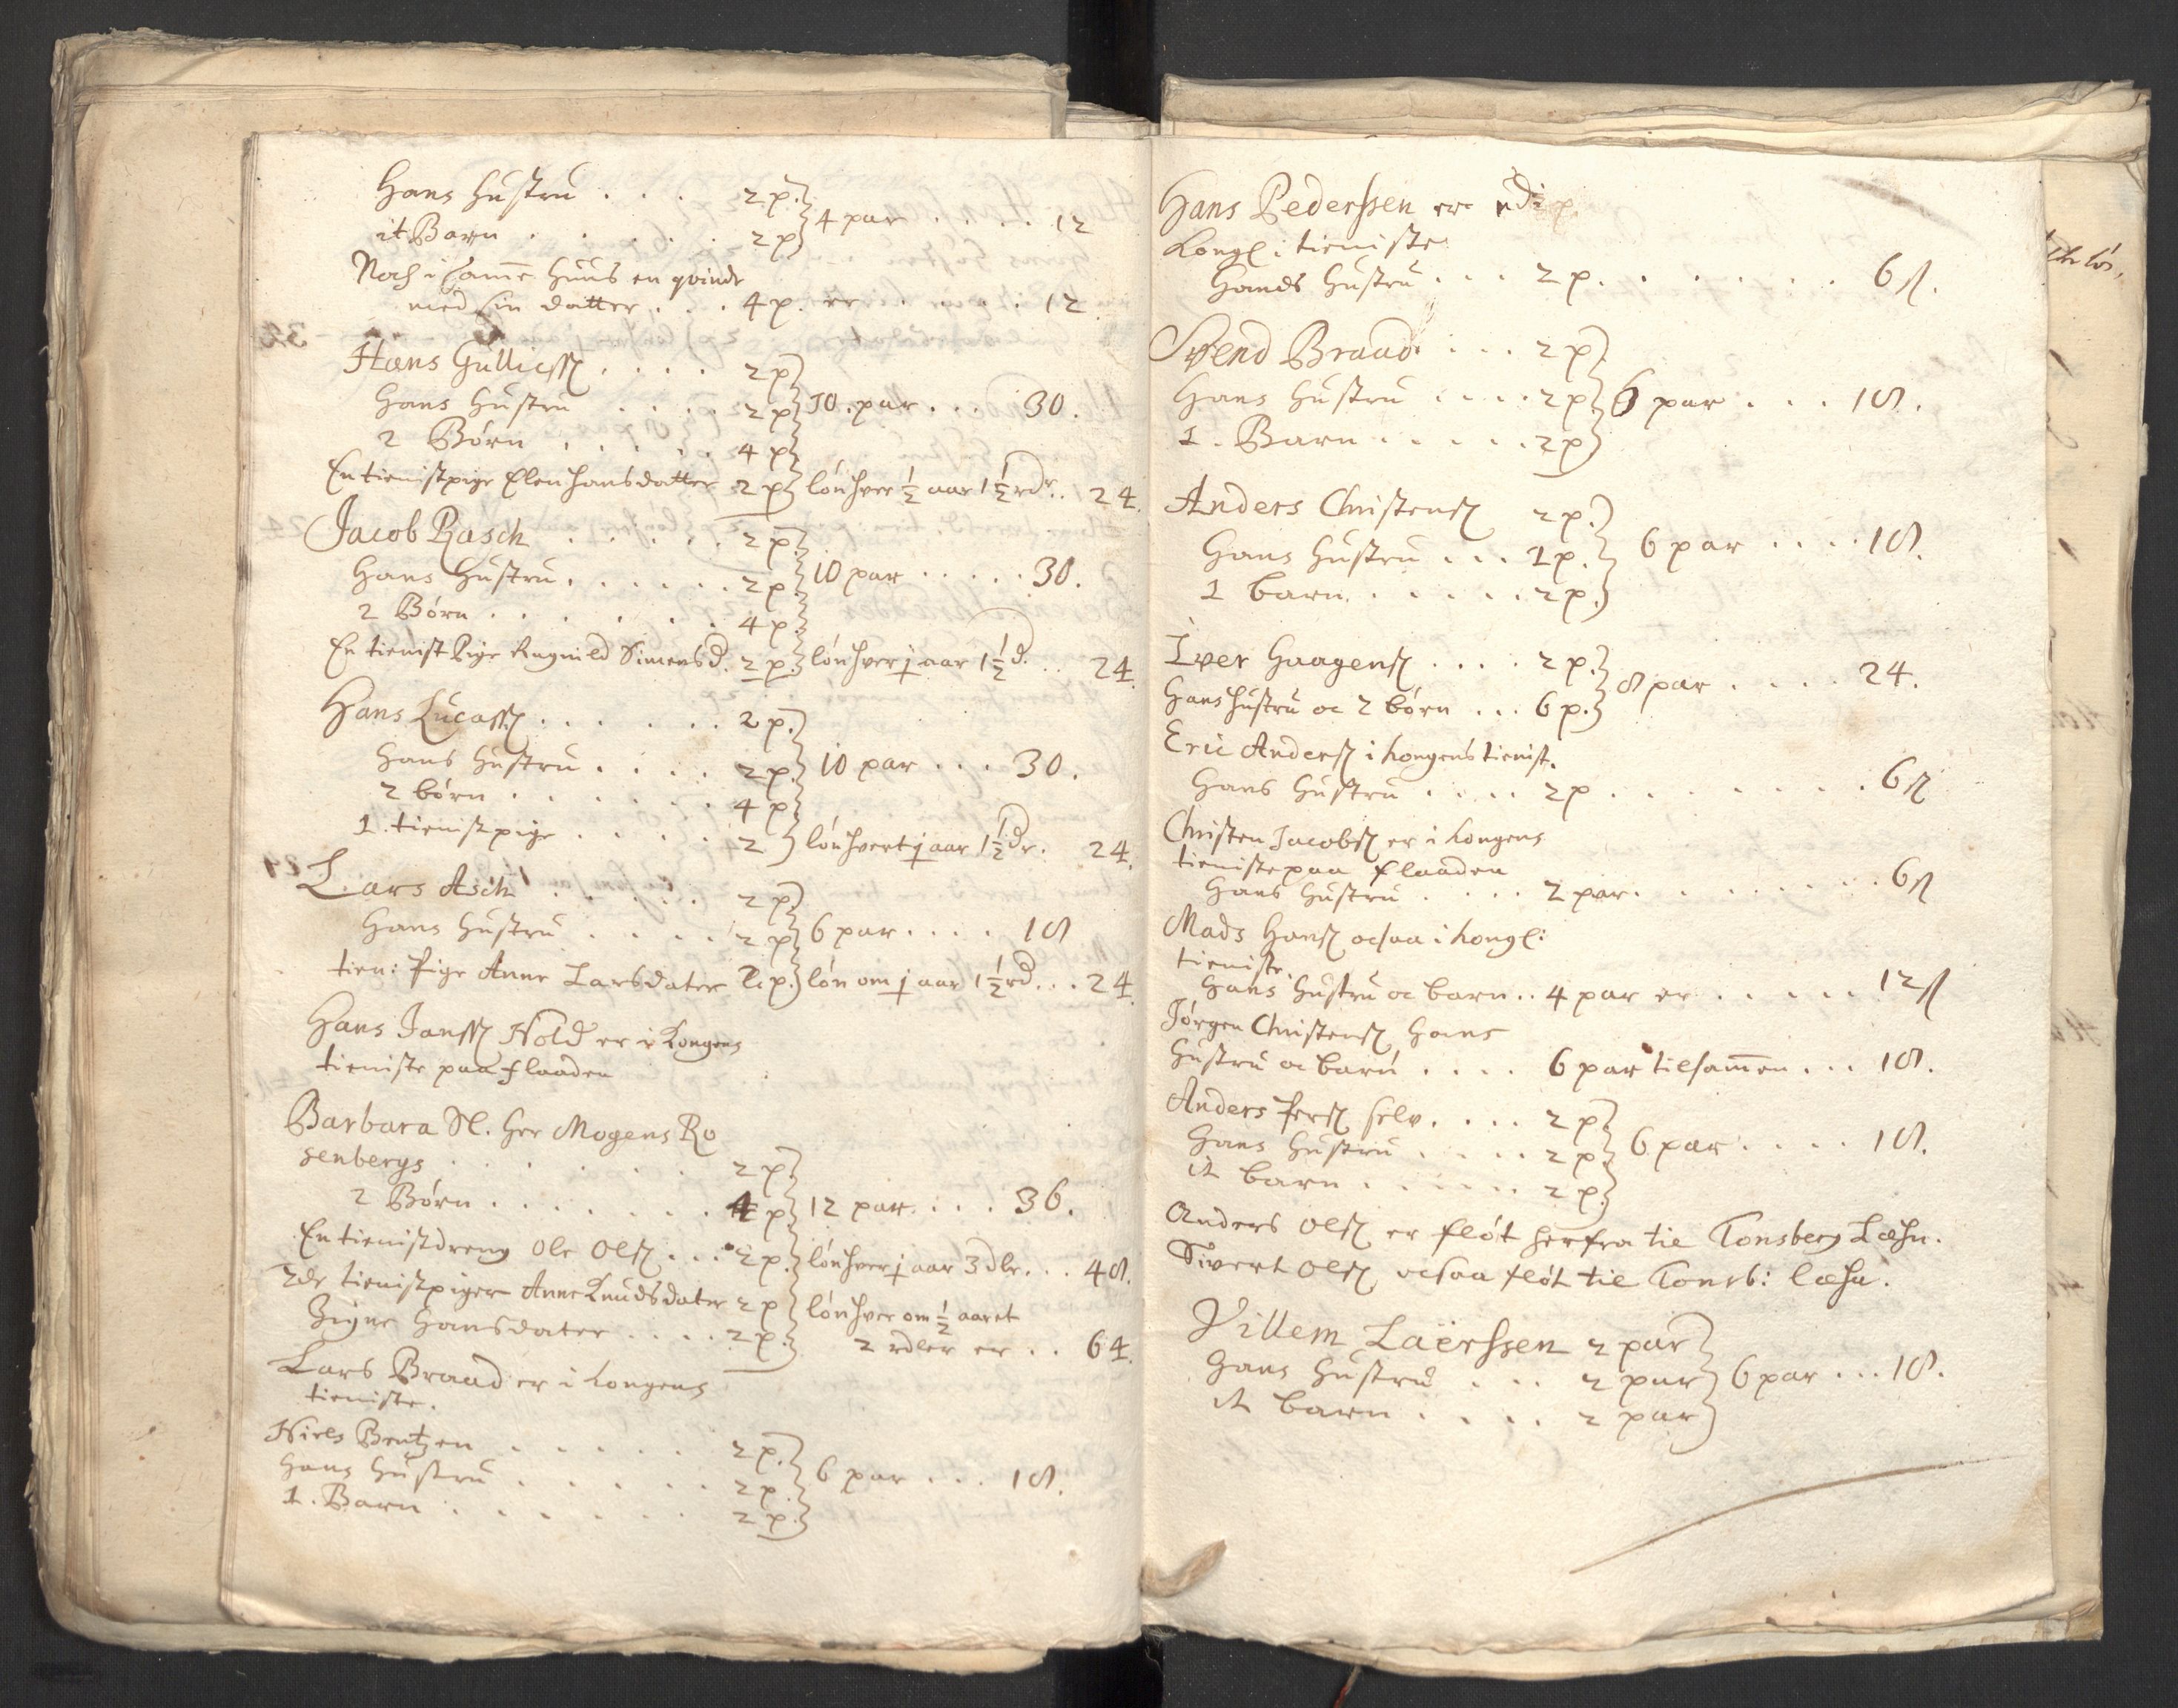 Hans Hustru . . . . 2 p.
it Barn . . . . . . 2 p } 4 par . . . . 12
Noch i samme Huus en qvinde
med sin datter . . . 4 p. er . . . . . 12.
Hans Gullichss . . . . 2 p
Hans Hustru . . . . 2 p } 10. par . . . 30.
2 Børn . . . . . . 4 p
En tienistpige Elen Hansdatter 2 p lön hver ½ aar 1½ rdr . . 24.
Jacob Rasch . . . . . . 2 p.
Hans Hustru . . . . . . 2 p. } 10 par . . . . . 30.
2 Børn . . . . . . . 4 p.
En tienist Pige Ragnild Simensd. 2 p. lön hver j aar 1½ d. . . 24.
Hans Lucass . . . . . . 2 p.
Hans Hustru . . . . 2 p. } 10 par . . . 30.
2 börn . . . . . . . 4 p
1. tienistpige . . . . . 2 } lön hvert j aar 1½ dr. 24.
Lars Asch . . . . . . 2 p
Hans Hustru . . . . 2 p } 6 par . . . . 18
tien: Pige Anne Larsdater 2 p. lön om j aar 1½ rd . . . 24.
Hans Janss Hold er i Kongens
tieniste paa flaaden
Barbara Sl. Her Mogens Ro
senbergs . . . . . . . 2 p
2 Børn . . . . . . . 4 p } 12 par . . . 36.
En tienistdreng Ole Ols . . . 2 p. lön hver j aar 3 dlr . . . 48.
2de tienistpiger Anne Knudsdater 2 p lön hver om ½ aaret
Zigne Hansdater . . . . 2 p. 2 rdler er . . 64.
Lars Braad er i Kongens
tieniste.
Niels Bentzen . . . . . . 2 p.
Hans Hustru . . . . . . 2 p. } 6 par . . . 18.
1. Barn . . . . . . . 2 p.
Hans Pederssen er udi
Kongl: tieniste
Hands Hustru . . . 2 p. . . . . . . . 6 ß.
Svend Braad . . . . 2 p
Hans Hustru . . . . 2 p } 6 par . . . 18.
1. Barn . . . . . . 2 p
Anders Christens 2 p.
Hans Hustru . . . 2 p. } 6 par . . . . 18.
1 barn . . . . . . 2 p.
Iver Haagens . . . . 2 p.
Hans Hustru oc 2 börn . . . 6 p. } 8 par . . . . 24.
Eric Anders i Kongens tienist.
Hans Hustru . . . . 2 p . . . . . . . . 6 ß
Christen Jacobs er i Kongens
tieniste paa flaaden
Hans Hustru . . . . 2 par . . . . . . . . 6 ß
Mads Hans ocsaa i Kongl:
tieniste.
Hans Hustru oc barn . . 4 par er . . . . . . 12 ß
Jörgen Christens Hans
Hustru oc barn . . . . 6 par tilsammen . . . 18.
Anders Pers selv . . . . 2 p
Hans Hustru . . . . 2 p } 6 par . . . . 18.
it barn . . . . . . 2 p.
Anders Ols er flöt herfra til Tonsberg Læhn.
Sivert Ols ocsaa flöt til Tonsb: læhn.
Villem Laërssen 2 par
Hans Hustru . . . 2 par } 6 par . . . 18.
it barn . . . . 2 par